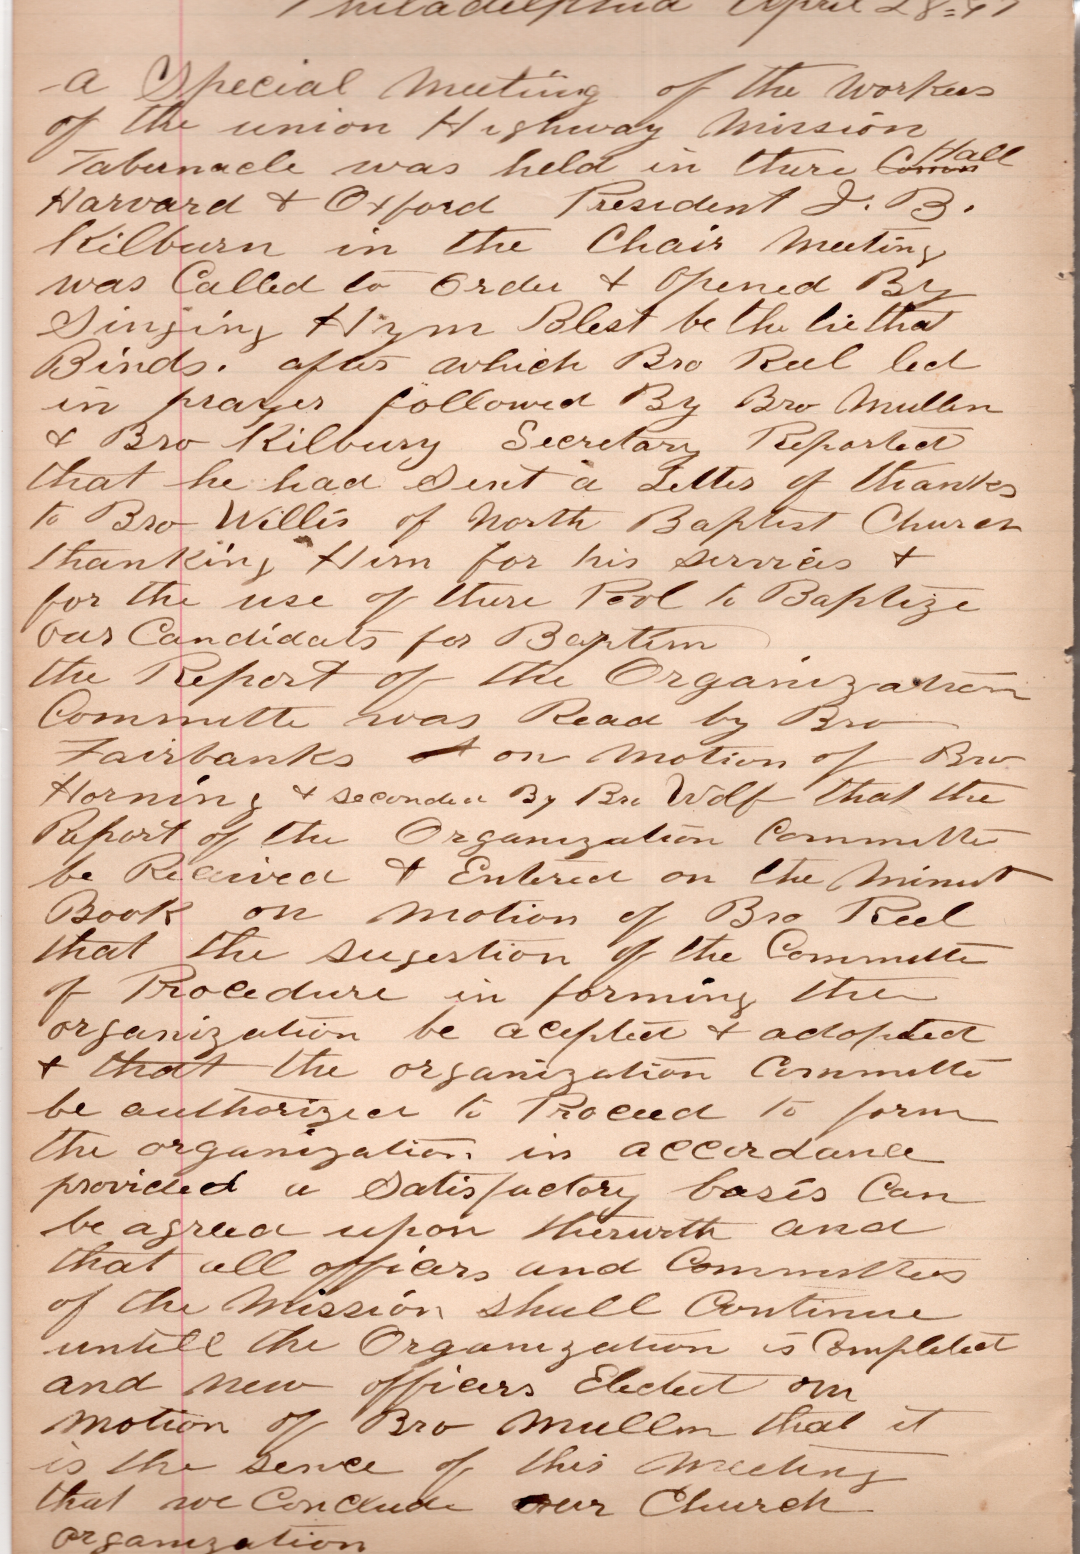 Philadelphia April 28=97
a Special Meeting of the workers
of the union Highway Mission
Tabernacle was held in there Hall
Harvard & Oxford President J. B.
Kilburn in the Chair Meeting
was Called to Order & Opened By
Singing Hym Blest be the tie that
Binds. after which Bro Reel led
in prayer followed By Bro Mullen
& Bro Kilbury Secretary Reported
that he had Sent a Letter of thanks
to Bro Willis of North Baptist Church
thanking Him for his servics &
for the use of there Pool to Baptize
our Candidats for Baptim
the Report of the Organization
Committe was Read by Bro
Fairbanks on Motion of Bro
Horning & seconded By Bro Wolf that the
Report of the Organization Committe
be Recived & Entered on the Minut
Book on Motion of Bro Reel
that the sugestion of the Committe
of Procedure in forming the
organization be acepted & adopted
& that the organization Committe
be authorized to Proceed to form
the organization in accordance
provided a Satisfactory basis Can
be agreed upon therwith and
that all officers and Committees
of the Mission shall Continue
untill the Organization is Completed
and new officers Elected on
Motion of Bro Mullen that it
is the sence of this Meeting
that we Conclude our Church
organization